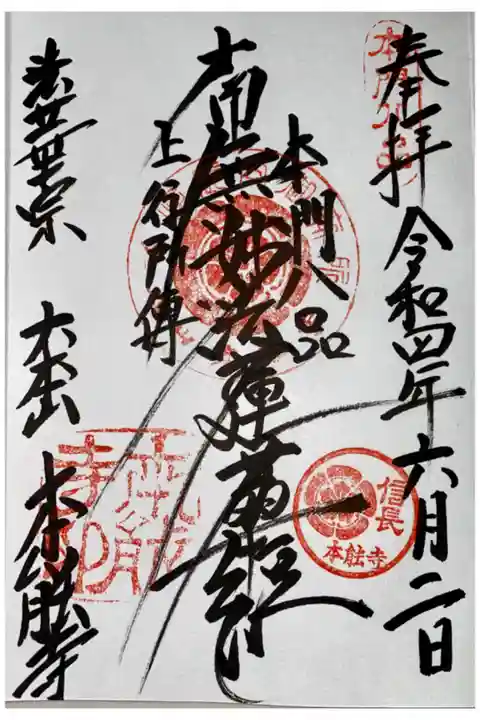 奉拝 令和四年六月二日
本門八品
南無妙法蓮華経
上行所傳
法華宗 大本山 本䏻寺
信長
本䏻寺